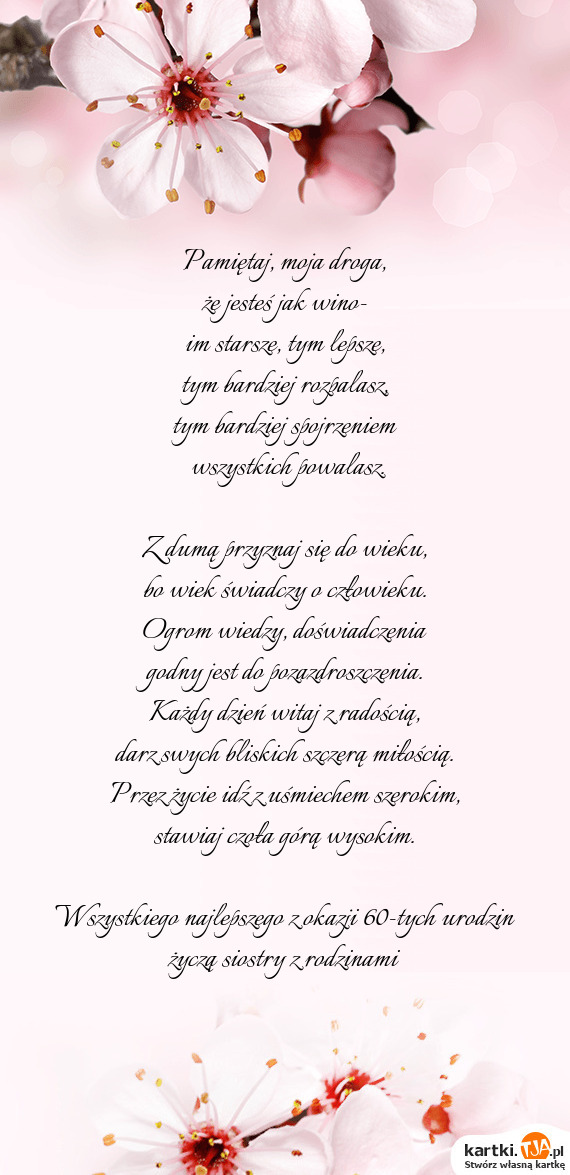 Pamiętaj, moja droga,
że jesteś jak wino-
im starsze, tym lepsze,
tym bardziej rozpalasz,
tym bardziej spojrzeniem
wszystkich powalasz.
Z dumą przyznaj się do wieku,
bo wiek świadczy o człowieku.
Ogrom wiedzy, doświadczenia
godny jest do pozazdroszczenia.
Każdy dzień witaj z radością,
darz swych bliskich szczerą miłością.
Przez życie idź z uśmiechem szerokim,
stawiaj czoła górą wysokim.
Wszystkiego najlepszego z okazji 60-tych urodzin
życzą siostry z rodzinami
kartki.TJA.pl
Stwórz własną kartkę